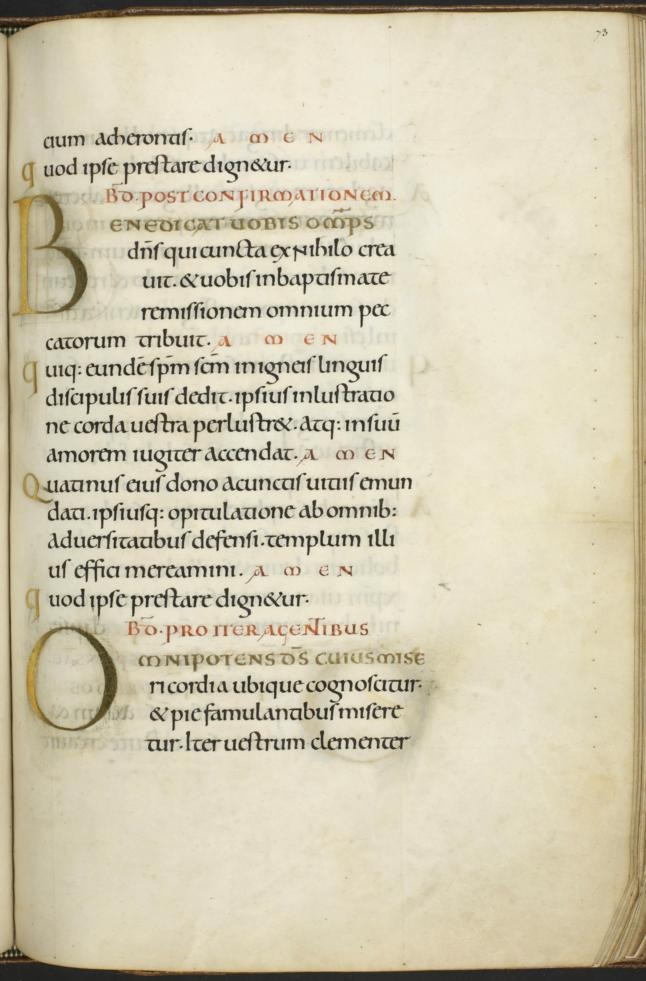 73
cium acherontis· A M E N
quod ipse prestare dign&ur·
B̄D̄·POST CONFIRMATIONEM.
BENEDICAT UOBIS OM̄PS
dn̄s qui cuncta ex nihilo crea
uit· & uobis in baptismate
remissionem omnium pec
catorum tribuit· A M E N
quiq: eundē sp̄m sc̄m in igneis linguis
discipulis suis dedit· ipsius inlustratio
ne corda uestra perlustr&· Atq: in suū
amorem iugiter accendat· A M E N
Quatinus eius dono a cunctis uitiis emun
dati· ipsiusq: opitulatione ab omnib:
aduersitatibus defensi· templum illi
us effici mereamini· A M E N
quod ipse prestare dign&ur·
B̄D̄·PRO ITER AGENTIBUS
OMNIPOTENS D̄S CUIUS MISE
ricordia ubique cognoscitur·
& pie famulantibus misere
tur· Iter uestrum clementer